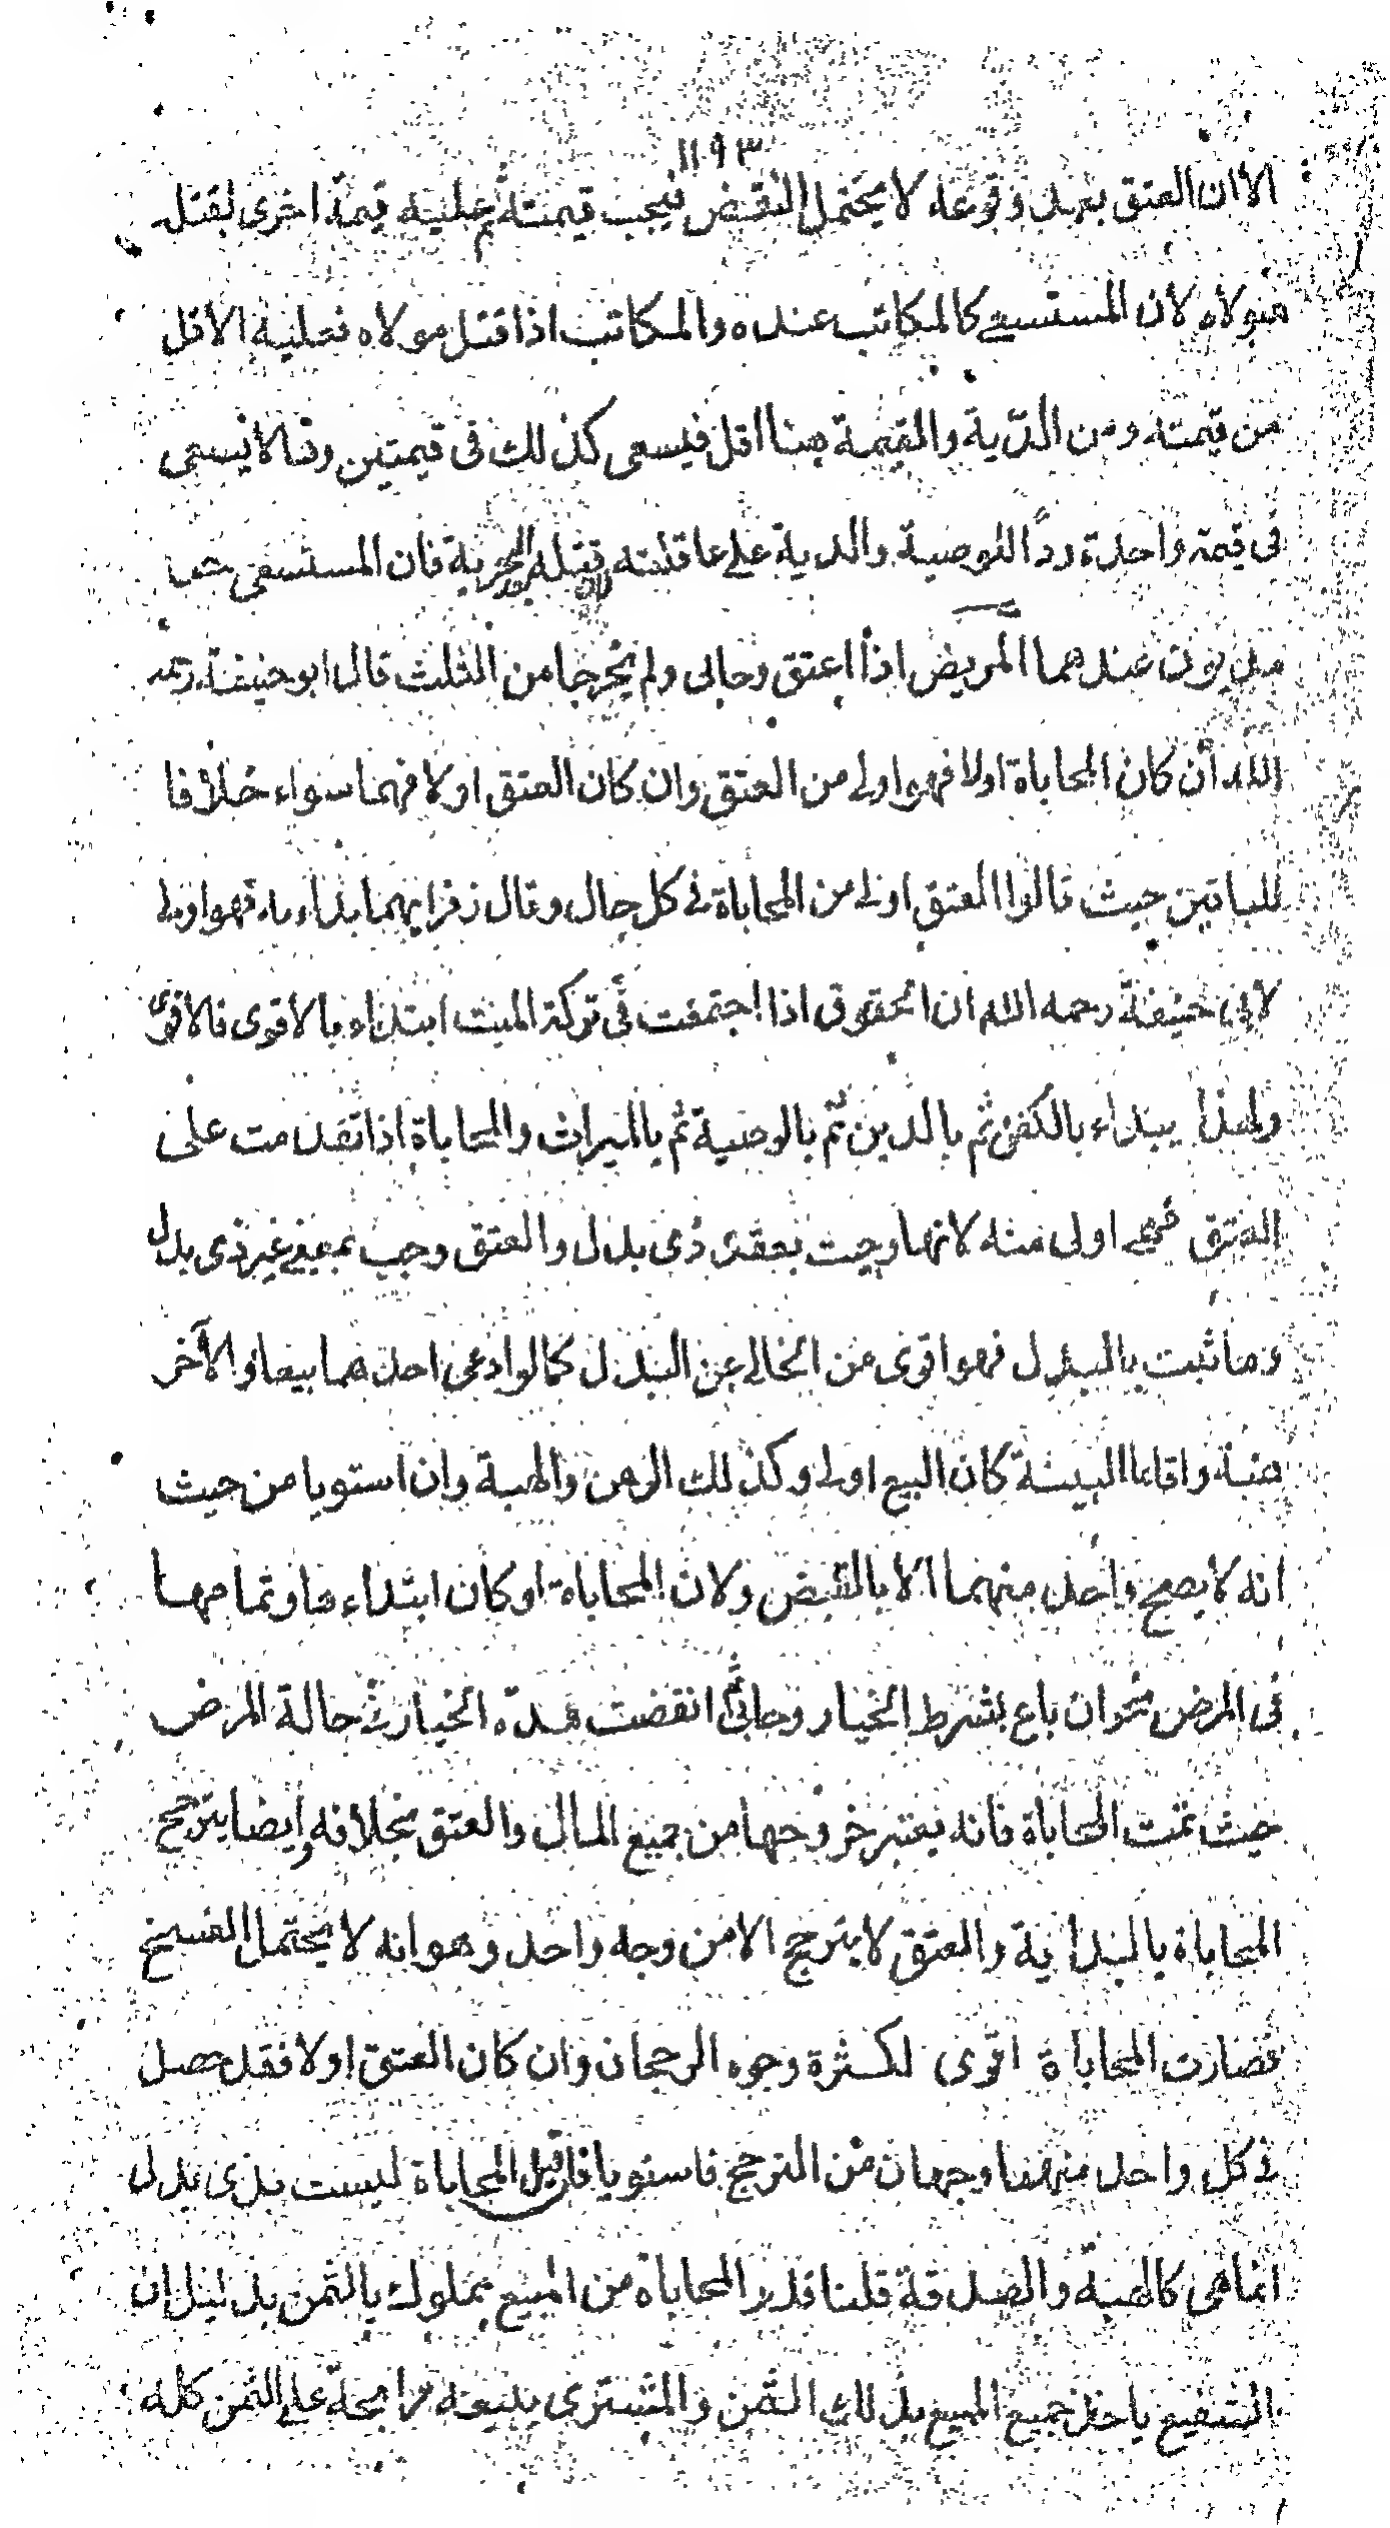 ١١٩٣
الا ان العتق بعد وقوعه لا يحتمل النقض فيجب قيمته ثم عليه قيمة اخرى لقتله
مولاه لان المستسعے كالمكاتب عنده والمكاتب اذا قتل مولاه فعليه الاقل
من قيمته ومن الدّية والقيمة هنا اقل فيسعى كذلك فى قيمتين وقالا يسعى
فى قيمة واحدة ردًا للوصية والدية علے عاقلته قتله الحرية فان المستسعى حر
مديون عندهما المريض اذا اعتق وحابى ولم يخرجا من الثلث قال ابو حنيفة رحمه
الله ان كان المحاباة اولا فهو اولے من العتق وان كان العتق اولا فهما سواء خلافا
للباقين حيث قالوا العتق اولے من المحاباة فے كل حال وقال زفر ايهما بداء به فهو اولے
لابى حنيفة رحمه الله ان الحقوق اذا اجتمعت فى تركة الميت ابتداء بالاقوى فالاقوى
ولهذا يبداء بالكفن ثم بالدين ثم بالوصية ثم بالميراث والمحاباة اذا تقدمت على
العتق فهى اولى منه لانها وجبت بعقد ذى بدل والعتق وجب بمعنے غير ذى بدل
وما ثبت بالبدل فهو اقوى من الخالے عن البدل كما لو ادعى احدهما بيعا والآخر
هبة واقاما البينة كان البيع اولے وكذلك الرهن والهبة وان استويا من حيث
انه لا يصح واحد منهما الا بالقبض ولان المحاباة لو كان ابتداءها وتمامها
فى المرض نحو ان باع بشرط الخيار وحابى انقضت مدة الخيار فے حالة المرض
حيث تمت المحاباة فانه يعتبر خروجها من جميع المال والعتق بخلافه وايضا يترجح
المحاباة بالبداية والعتق لا يترجح الا من وجه واحد وهو انه لا يحتمل الفسخ
فصارت المحاباة اقوى لكثرة وجوه الرجحان وان كان العتق اولا فقد حصل
فے كل واحد منهما وجهان من الترجح فاستويا فان قيل المحاباة ليست بذى بدل
انما هى كالهبة والصدقة قلنا قدر المحاباة من المبيع مملوك بالثمن بدليل ان
الشفيع ياخذ جميع المبيع بذلك الثمن والمشترى يبيعه مرابحة علے الثمن كله